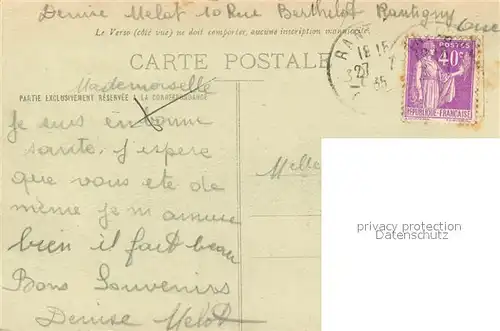 Denise Melot 10 Rue Berthelot Rantigny
Oise
Le Verso (côté vue) ne doit comporter aucune inscription manuscrite
CARTE POSTALE
RA
18 15
27 7
3 35
POSTES
40c
REPUBLIQUE-FRANÇAISE
Mademoiselle
PARTIE EXCLUSIVEMENT RÉSERVÉE A LA CORRESPONDANCE
Je suis en bonne
sante. J'espere
que vous ete de
même je m amuse
bien il fait beau
Bons Souvenirs
Denise Melot
Melle
privacy protection
Datenschutz